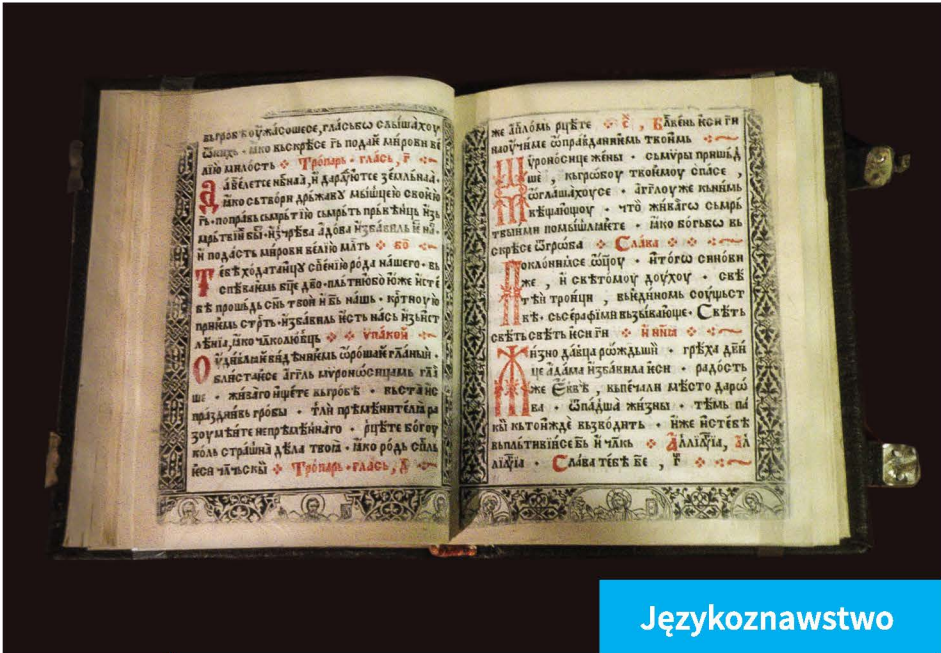 вьгробѣ оужасошесе, гласьбѡ слышахоу
ѿнихь · ꙗко вьскрьсе г҃ь подаѝ мирови ве
лїю милость · Тропарь · глась, г҃
Да веселетсе нб҃наꙗ, и радꙋютсе земльнаꙗ ·
ꙗко сьтвори дрьжавꙋ мышцею своѥю
г҃ь · поправь сьмрьтїю сьмрьть прьвѣнць изь
мрьтвїи бы · изчрѣва адова избавиль и на ·
и подасть мирови велїю млⷭ҇ть · бо҃
Тебѣ ходатаицꙋ сп҃енїю рода нашего · вь
спѣваимь бц҃е дв҃о · пльтиюбо юже исте
бе прошьдь сн҃ь твои и б҃ь нашь · крⷭ҇тною
приимь стрⷭ҇ть · избавиль ѥсть нась изьист
лѣнїа, ꙗко чл҃колюбць · упакои
Оудивлаѥ видѣниѥмь ѡрошаѥ гл҃аныи ·
блистаисе агг҃ль мѵроносицамь гл҃а
ше · живаго ищете вьгробѣ · вьстаисе
праздьнивь гробы · тли прѣмѣнителꙗ ра
зоумѣите непрѣмѣннаго · рцѣте богоу
коль страшна дѣла твоꙗ · ꙗко родь сп҃ль
ѥси чл҃чьскы · Тропарь · глась, д҃
же ап҃ломь рцѣте · с҃, Бл҃вѥнь ѥси г҃и
наоучи ме ѡправданиѥмь твоимь
Мѵроносице жены · сьмѵры пришьд
ше, кьгробоу твоѥмоу спасе,
ѡглашахоусе · агг҃лоу же кьнимь
вѣщающоу · что живаго сьмрь
твыими помышлꙗѥте · ꙗко богьбо вь
скрьсе ѿгроба · Слава
Поклонимсе ѡц҃оу · и ѥго синови
же, и светомоу доухоу · све
тѣи троици, вьѥдиномь соущьст
вѣ · сьсерафїми вьзывающе · Светь
светь светь ѥси г҃и · и нин҃ꙗ
Жизнодавца рѡждьши · грѣха дв҃и
це адама избавила ѥси · радость
же Еввѣ, вьпечали мѣсто дарѡ
ва · ѿпадша жизны · тѣмь па
кы кьтоижде вьзводить · иже истебѣ
вьпльтивїисе б҃ь и чл҃кь · Аллилꙋїа, ал
лилꙋїа · Слава тебѣ б҃е, г҃
Językoznawstwo